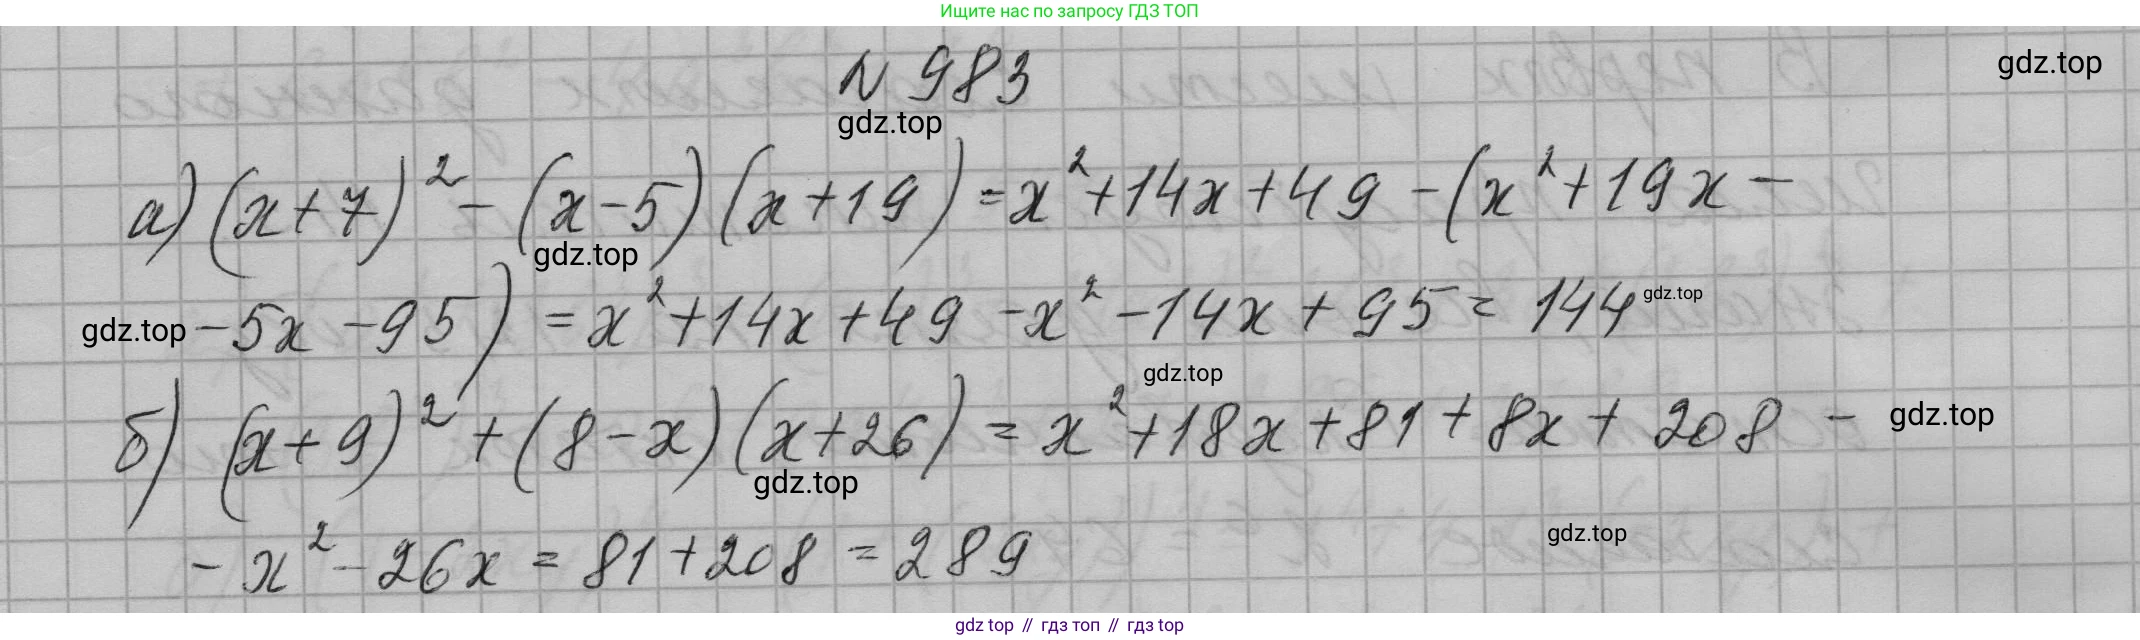 Ищите нас по запросу ГДЗ ТОП
N 983
gdz.top
gdz.top
а) (x+7)² - (x-5)(x+19) = x²+14x+49 - (x²+19x -
gdz.top
gdz.top
-5x -95) = x²+14x+49 -x² -14x + 95 = 144
gdz.top
gdz.top
б) (x+9)² + (8-x)(x+26) = x²+18x+81+8x+ 208 -
gdz.top
gdz.top
- x² - 26x = 81+208 = 289
gdz.top
gdz top // гдз топ // гдз top